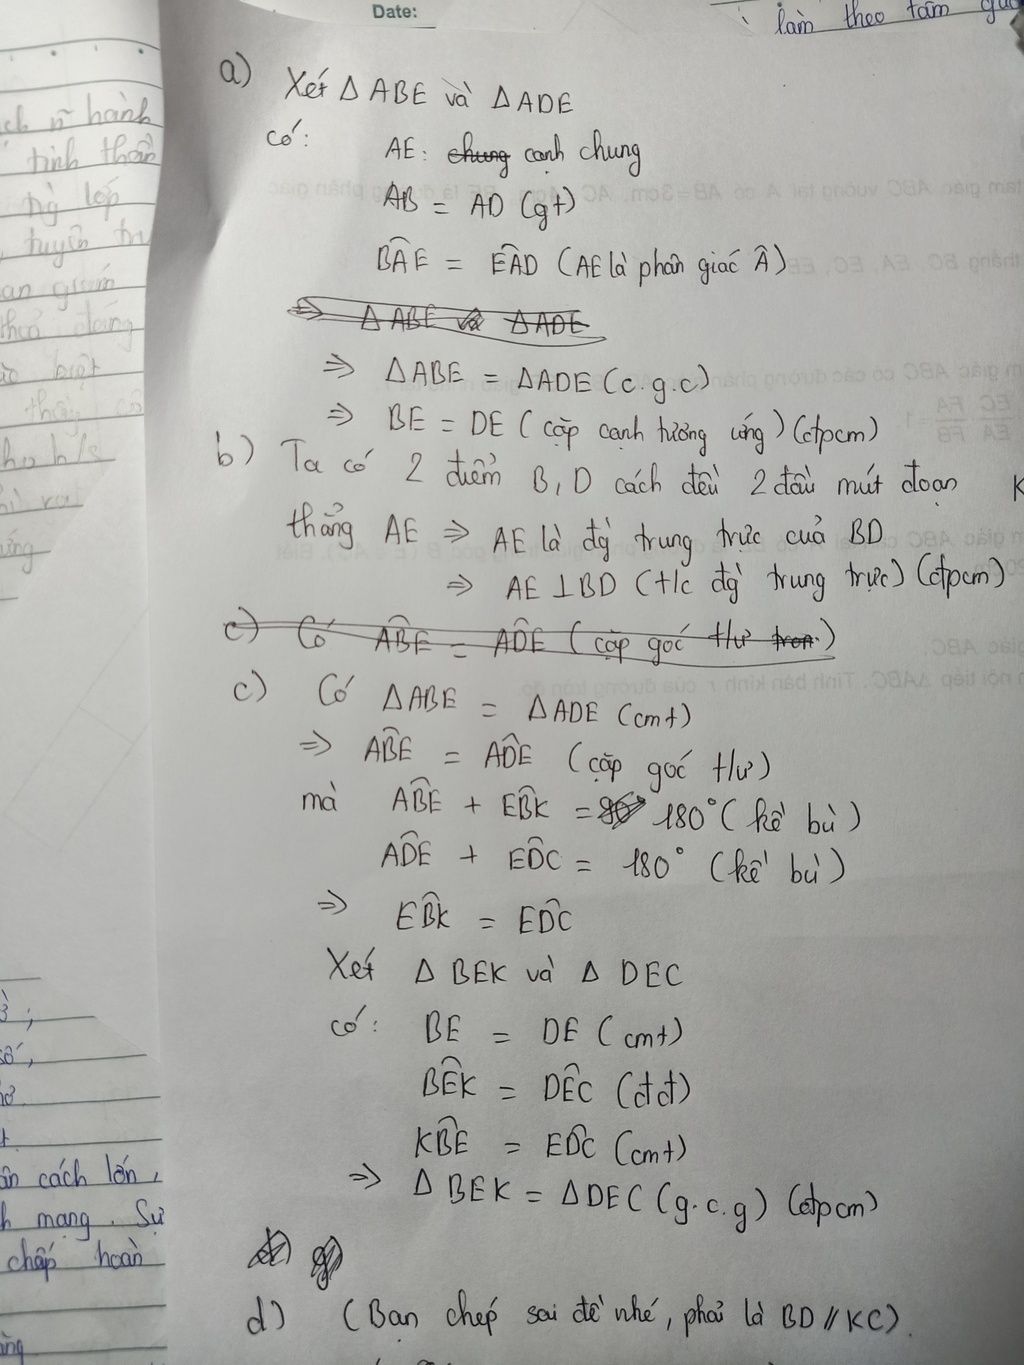 Date:
làm theo tấm
a) Xét Δ ABE và Δ ADE
có: AE: chung cạnh chung
AB = AD (gt)
BÂE = EÂD (AE là phân giác Â)
=> Δ ABE và Δ ADE
=> Δ ABE = Δ ADE (c.g.c)
=> BE = DE (cặp cạnh tương ứng) (đpcm)
b) Ta có 2 điểm B, D cách đều 2 đầu mút đoạn
thẳng AE => AE là đg` trung trực của BD
=> AE ⊥ BD (t/c đg` trung trực) (đpcm)
c) Có AB̂E = AD̂E (cặp góc t/ư tron.)
c) Có Δ ABE = Δ ADE (cmt)
=> AB̂E = AD̂E (cặp góc t/ư)
mà AB̂E + EB̂K = 180° (kề bù)
AD̂E + ED̂C = 180° (kề bù)
=> EB̂K = ED̂C
Xét Δ BEK và Δ DEC
có: BE = DE (cmt)
BÊK = DÊC (đđ)
KB̂E = ED̂C (cmt)
=> Δ BEK = Δ DEC (g.c.g) (đpcm)
d) (Bạn chép sai đề nhé, phải là BD // KC).
hành
tinh thần
lớp
tuyên
giám
đáng
biệt
thầy cô
cách lớn,
mạng. Sự
chấp hoàn